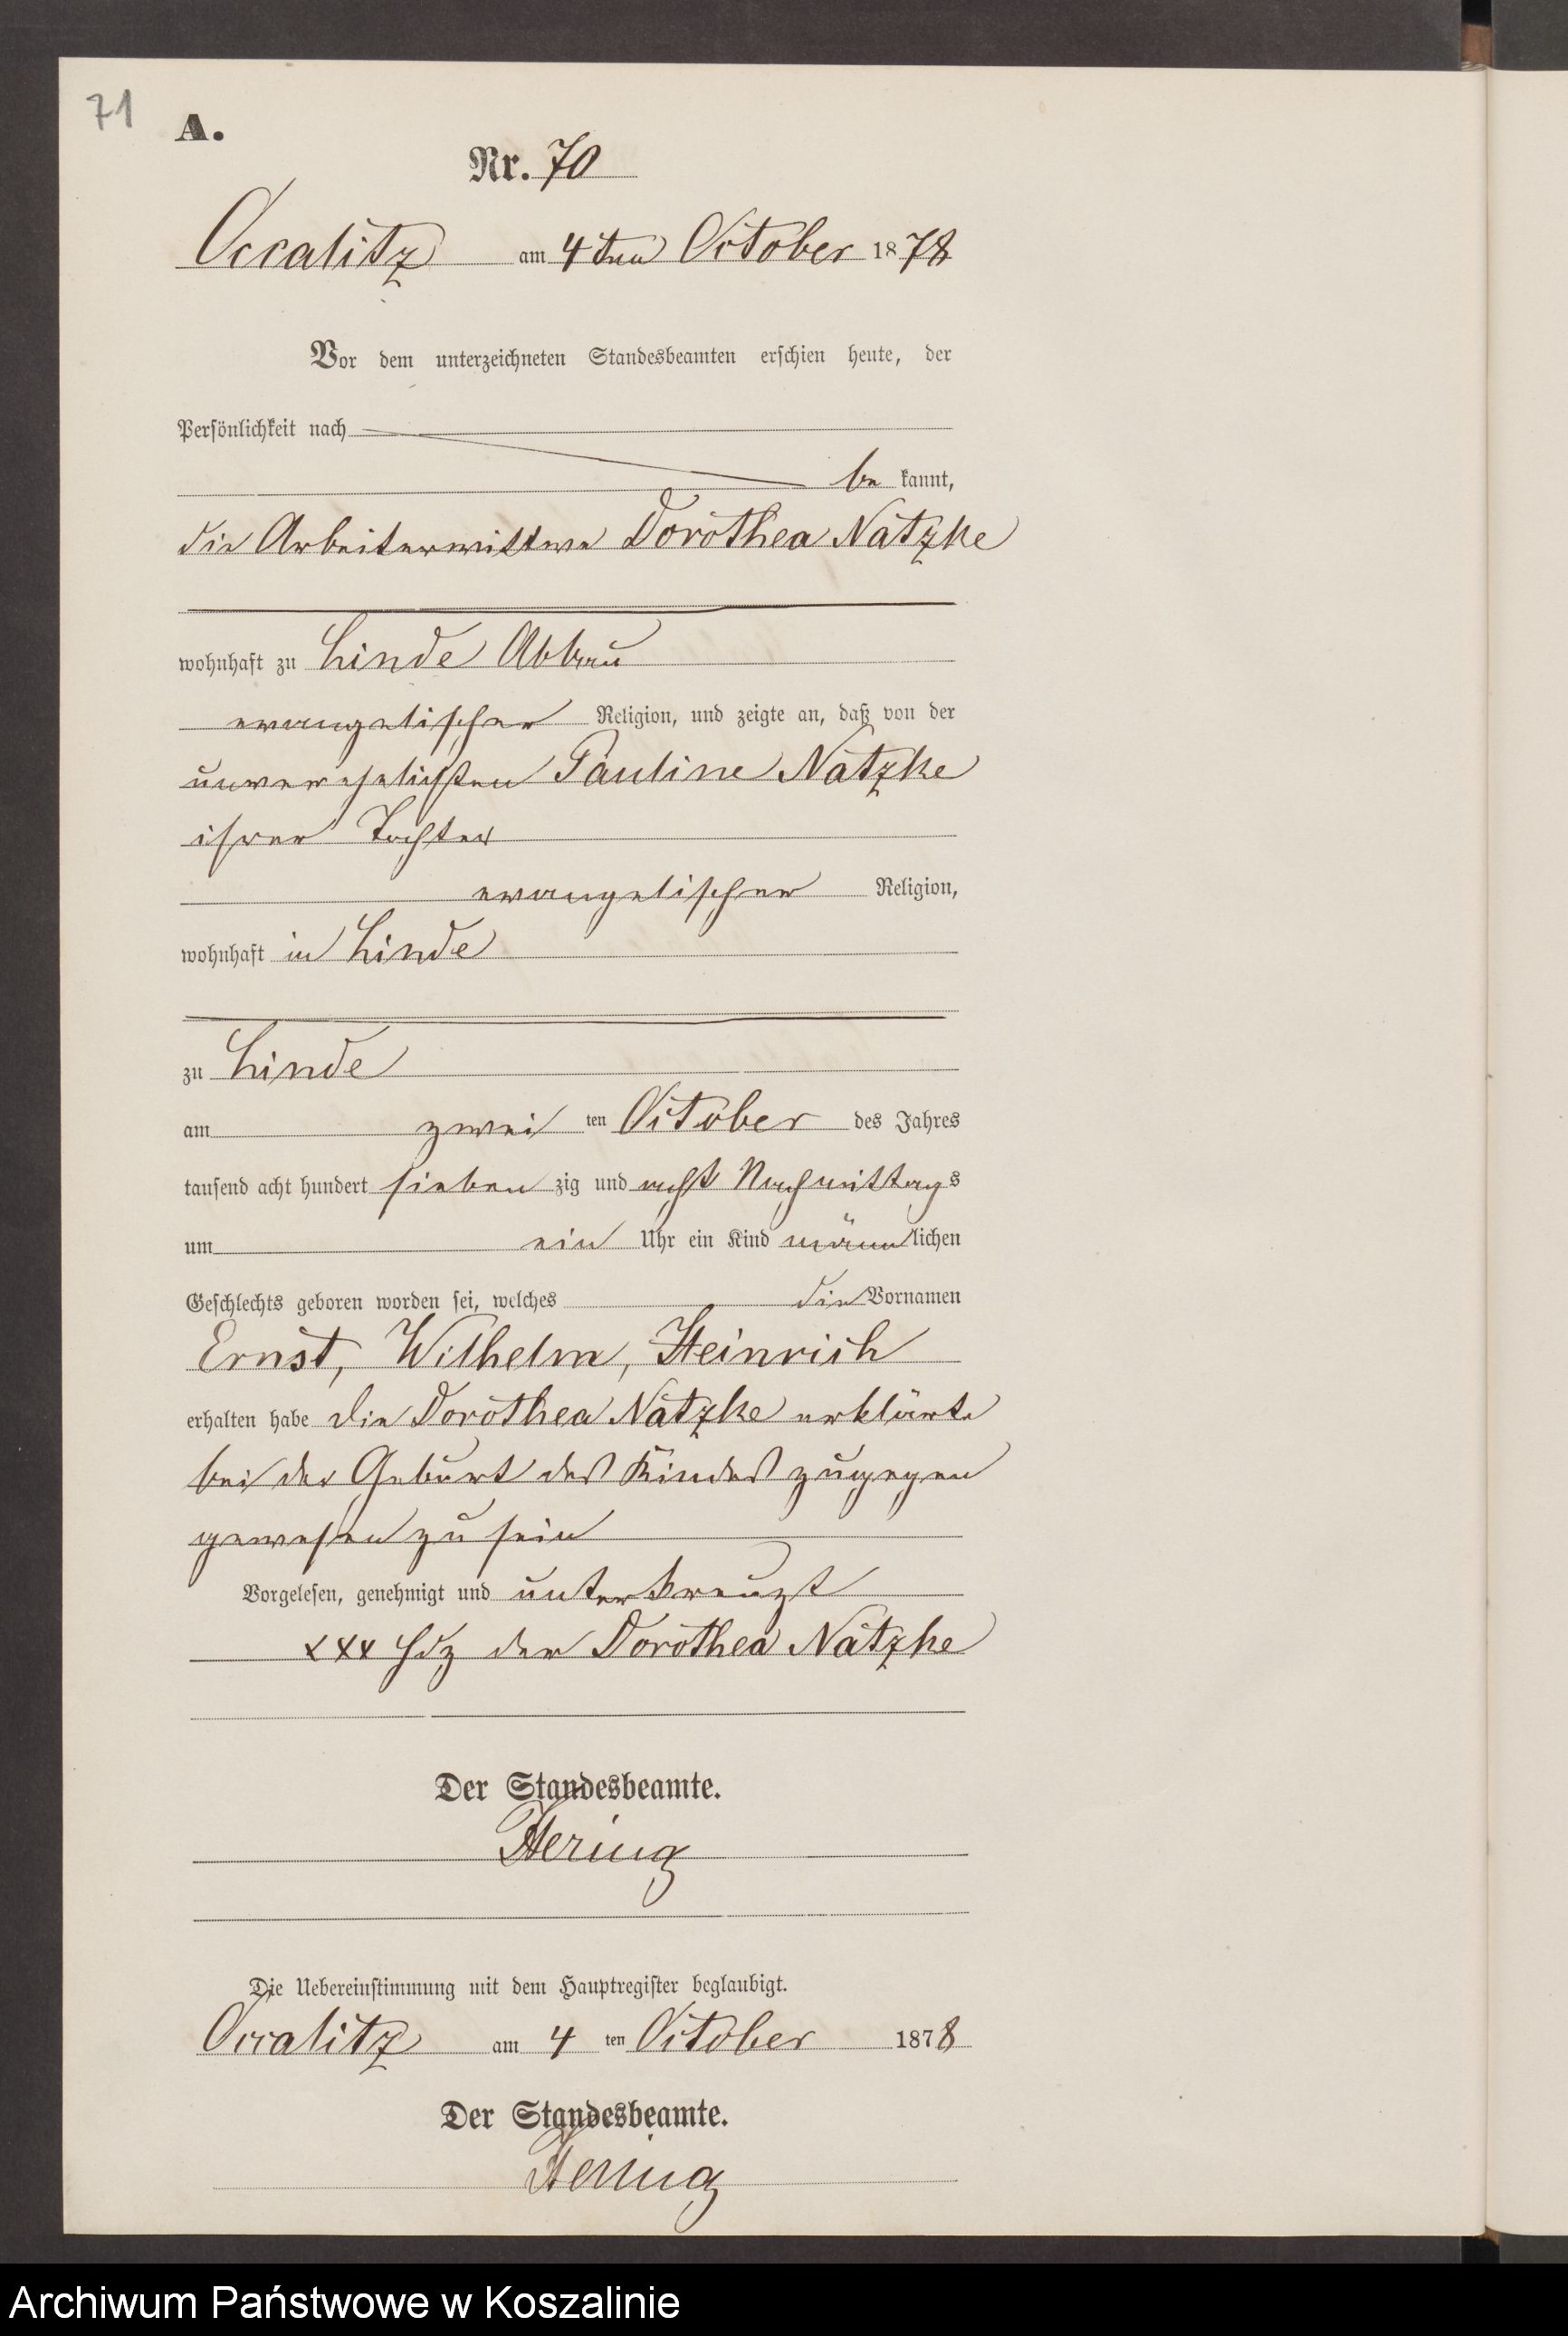 71
A.
Nr. 70
Occalitz am 4ten October 1878
Vor dem unterzeichneten Standesbeamten erschien heute, der
Persönlichkeit nach
be kannt,
die Arbeiterwittwe Dorothea Natzke
wohnhaft zu Linde Abbau
evangelischer Religion, und zeigte an, daß von der
unverehelichten Pauline Natzke
ihrer Tochter
evangelischer Religion,
wohnhaft in Linde
zu Linde
am zwei ten October des Jahres
tausend acht hundert sieben zig und acht Nachmittags
um ein Uhr ein Kind männlichen
Geschlechts geboren worden sei, welches die Vornamen
Ernst, Wilhelm, Heinrich
erhalten habe die Dorothea Natzke erklärte
bei der Geburt des Kindes zugegen
gewesen zu sein
Vorgelesen, genehmigt und unterkreuzt
xxx Hdz der Dorothea Natzke
Der Standesbeamte.
Hering
Die Uebereinstimmung mit dem Hauptregister beglaubigt.
Occalitz am 4 ten October 1878
Der Standesbeamte.
Hering
Archiwum Państwowe w Koszalinie